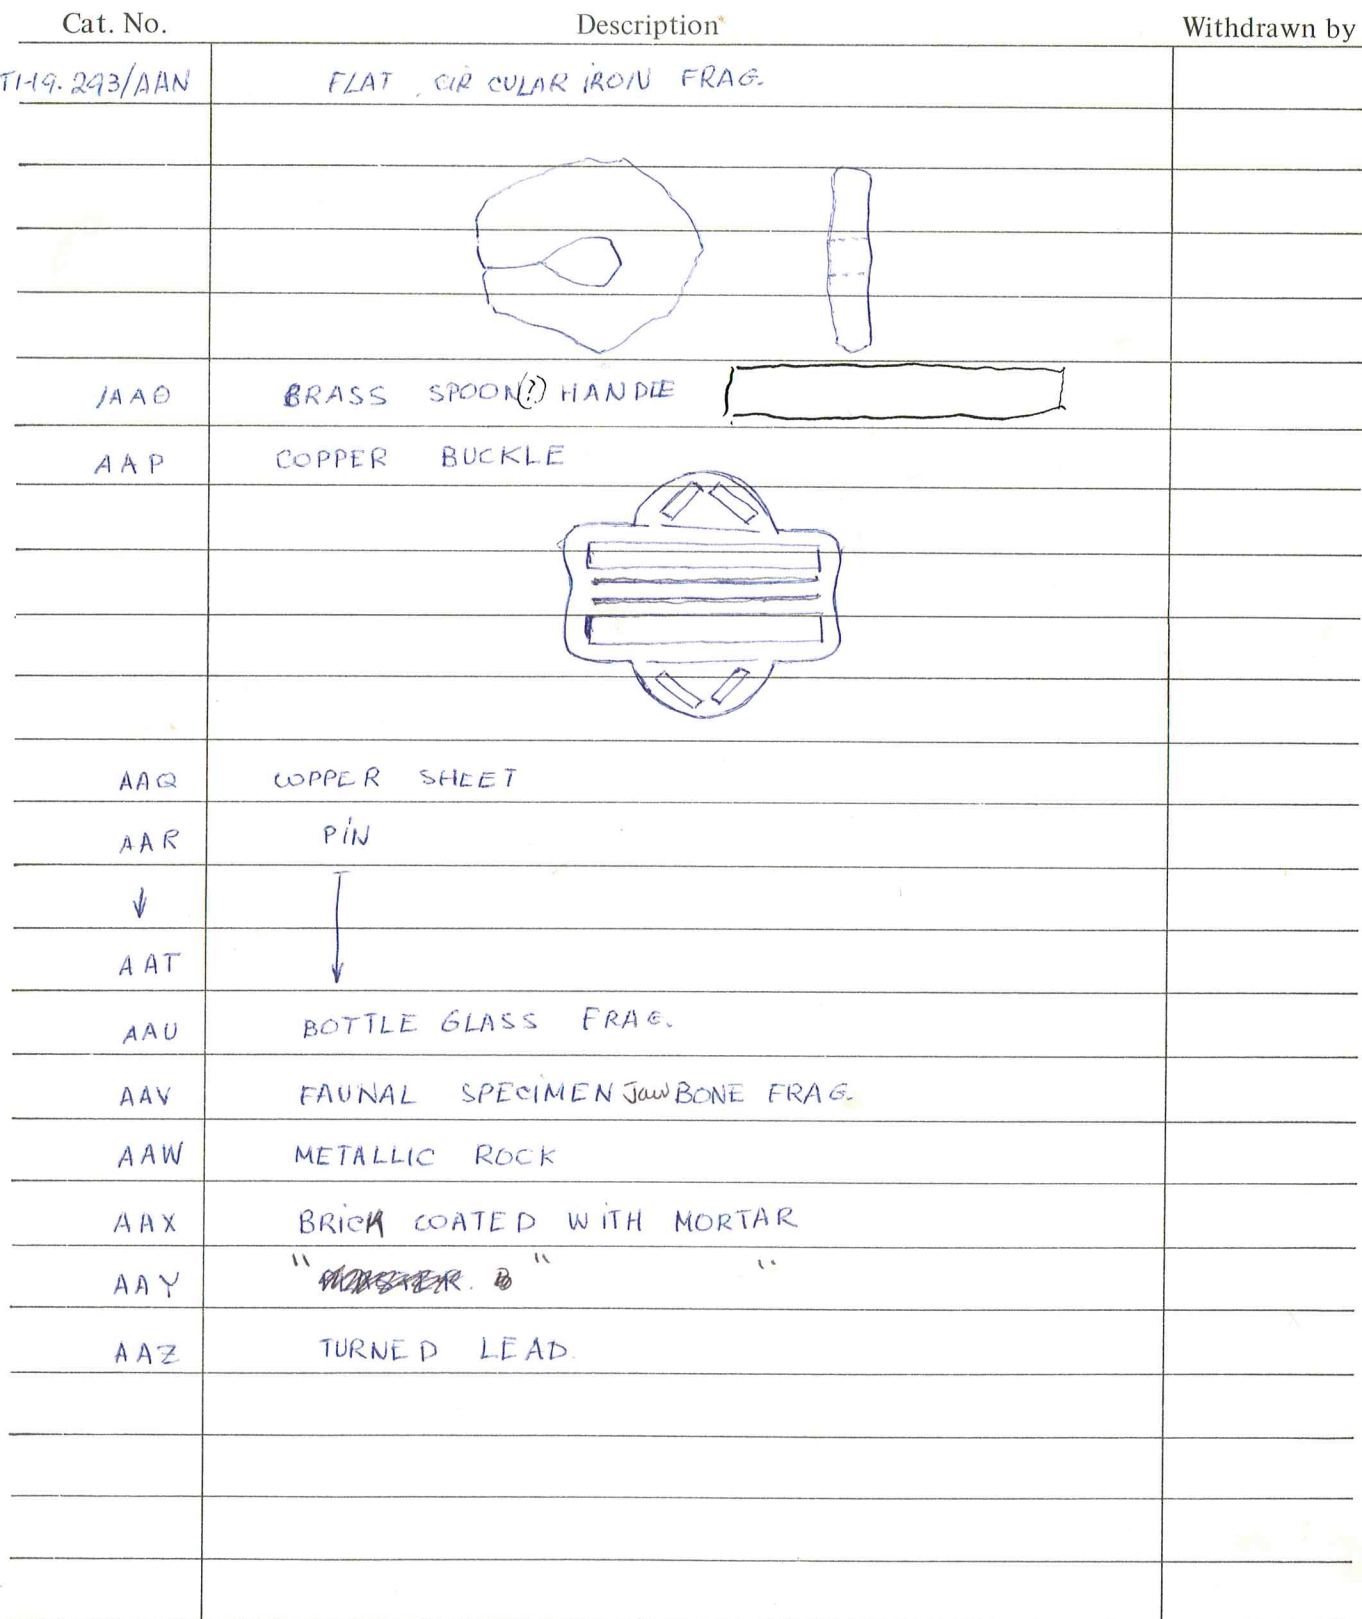 Cat. No. Description Withdrawn by
TI-19.293/AAN FLAT CIRCULAR IRON FRAG.
/AAO BRASS SPOON(?) HANDLE
AAP COPPER BUCKLE
AAQ COPPER SHEET
AAR PIN
↓
AAT
AAU BOTTLE GLASS FRAG.
AAV FAUNAL SPECIMEN Jaw BONE FRAG.
AAW METALLIC ROCK
AAX BRICK COATED WITH MORTAR
AAY " " "
AAZ TURNED LEAD.